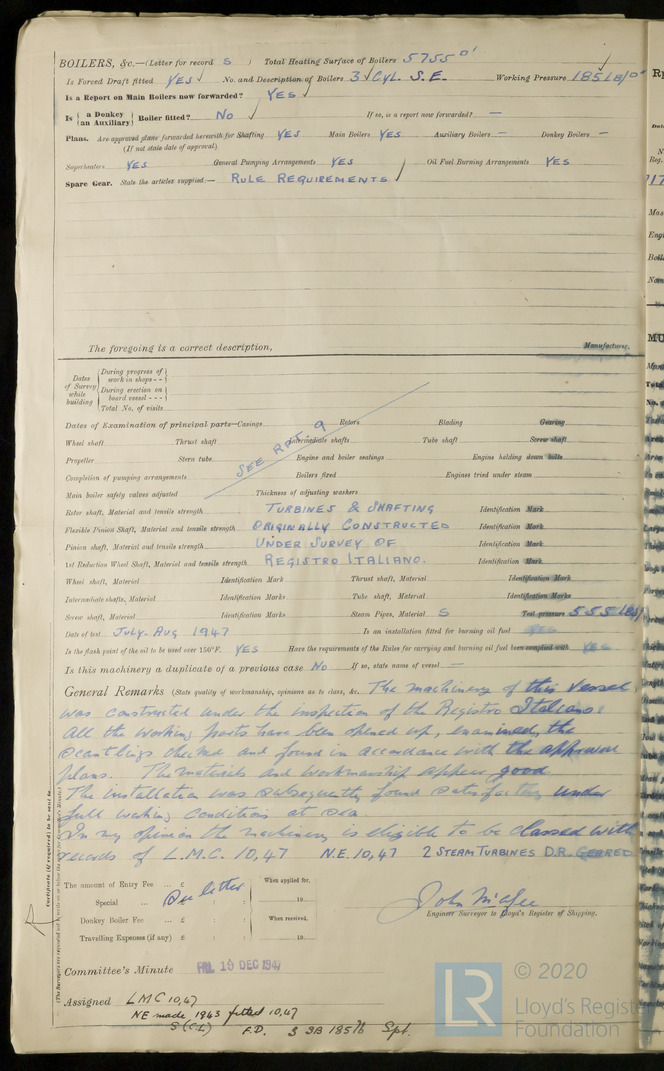 BOILERS, &c.—(Letter for record S ) Total Heating Surface of Boilers 5755 □'
Is Forced Draft fitted YES ✓ No. and Description of Boilers 3 ✓ CYL. S.E. Working Pressure 185 LB/□"
Is a Report on Main Boilers now forwarded? YES ✓
Is { a Donkey / an Auxiliary } Boiler fitted? NO ✓ If so, is a report now forwarded? —
Plans. Are approved plans forwarded herewith for Shafting YES Main Boilers YES Auxiliary Boilers — Donkey Boilers —
(If not state date of approval)
Superheaters YES General Pumping Arrangements YES Oil Fuel Burning Arrangements YES
Spare Gear. State the articles supplied:— RULE REQUIREMENTS ✓
The foregoing is a correct description, Manufacturer.
Dates of Survey while building
During progress of work in shops - -
During erection on board vessel - - -
Total No. of visits
Dates of Examination of principal parts—Casings Rotors Blading Gearing
Wheel shaft Thrust shaft Intermediate shafts Tube shaft Screw shaft
Propeller Stern tube Engine and boiler seatings Engine holding down bolts
SEE RPT 9
Completion of pumping arrangements Boilers fixed Engines tried under steam
Main boiler safety valves adjusted Thickness of adjusting washers
Rotor shaft, Material and tensile strength TURBINES & SHAFTING Identification Mark
Flexible Pinion Shaft, Material and tensile strength ORIGINALLY CONSTRUCTED Identification Mark
Pinion shaft, Material and tensile strength UNDER SURVEY OF Identification Mark
1st Reduction Wheel Shaft, Material and tensile strength REGISTRO ITALIANO. Identification Mark
Wheel shaft, Material Identification Mark Thrust shaft, Material Identification Mark
Intermediate shafts, Material Identification Marks Tube shaft, Material Identification Marks
Screw shaft, Material Identification Marks Steam Pipes, Material S Test pressure 555 LB/□"
Date of test JULY. AUG 1947 Is an installation fitted for burning oil fuel YES
Is the flash point of the oil to be used over 150°F. YES Have the requirements of the Rules for carrying and burning oil fuel been complied with YES
Is this machinery a duplicate of a previous case NO If so, state name of vessel —
General Remarks (State quality of workmanship, opinions as to class, &c. The machinery of this vessel
was constructed under the inspection of the Registro Italiano.
All the working parts have been opened up, examined, the
scantlings checked and found in accordance with the approved
plans. The materials and workmanship appear good
The installation was subsequently found satisfactory under
full working conditions at sea.
In my opinion the machinery is eligible to be classed with
records of L.M.C. 10,47 N.E. 10,47 2 STEAM TURBINES D.R. GEARED
Certificate (if required) to be sent to
The amount of Entry Fee ... £ : : When applied for,
Special ... £ See letter : : 19
Donkey Boiler Fee ... £ : : When received,
Travelling Expenses (if any) £ : : 19
John McAfee
Engineer Surveyor to Lloyd's Register of Shipping.
Committee's Minute FRI. 19 DEC 1947
Assigned LMC 10,47
NE made 1943 fitted 10,47
S(CL) F.D. 3 SB 185 lb Spt.
LR
© 2020
Lloyd's Register
Foundation